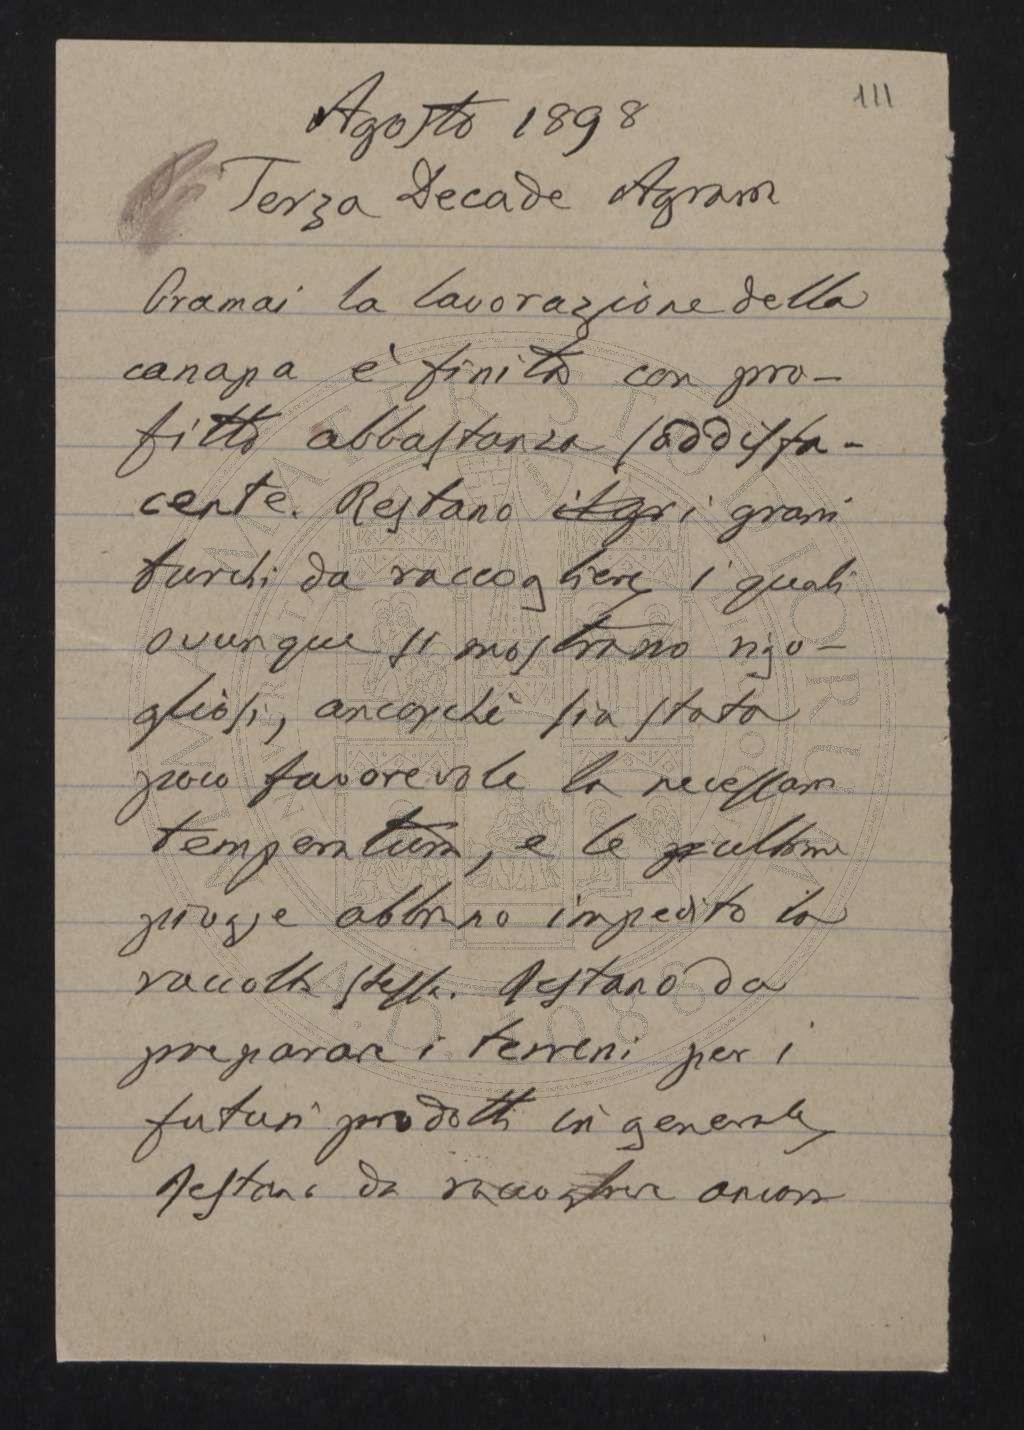 111
Agosto 1898
Terza Decade Agraria
Oramai la lavorazione della
canapa è finita con pro-
fitto abbastanza soddisfa-
cente. Restano i grani
turchi da raccogliere, i quali
ovunque si mostrano rigo-
gliosi, ancorchè sia stata
poco favorevole la necessaria
temperatura, e le ultime
piogge abbiano impedito la
raccolta stessa. Restano da
preparare i terreni per i
futuri prodotti in generale,
Restano da raccogliere ancora
ALMA MATER STUDIORUM
A.D. 1088